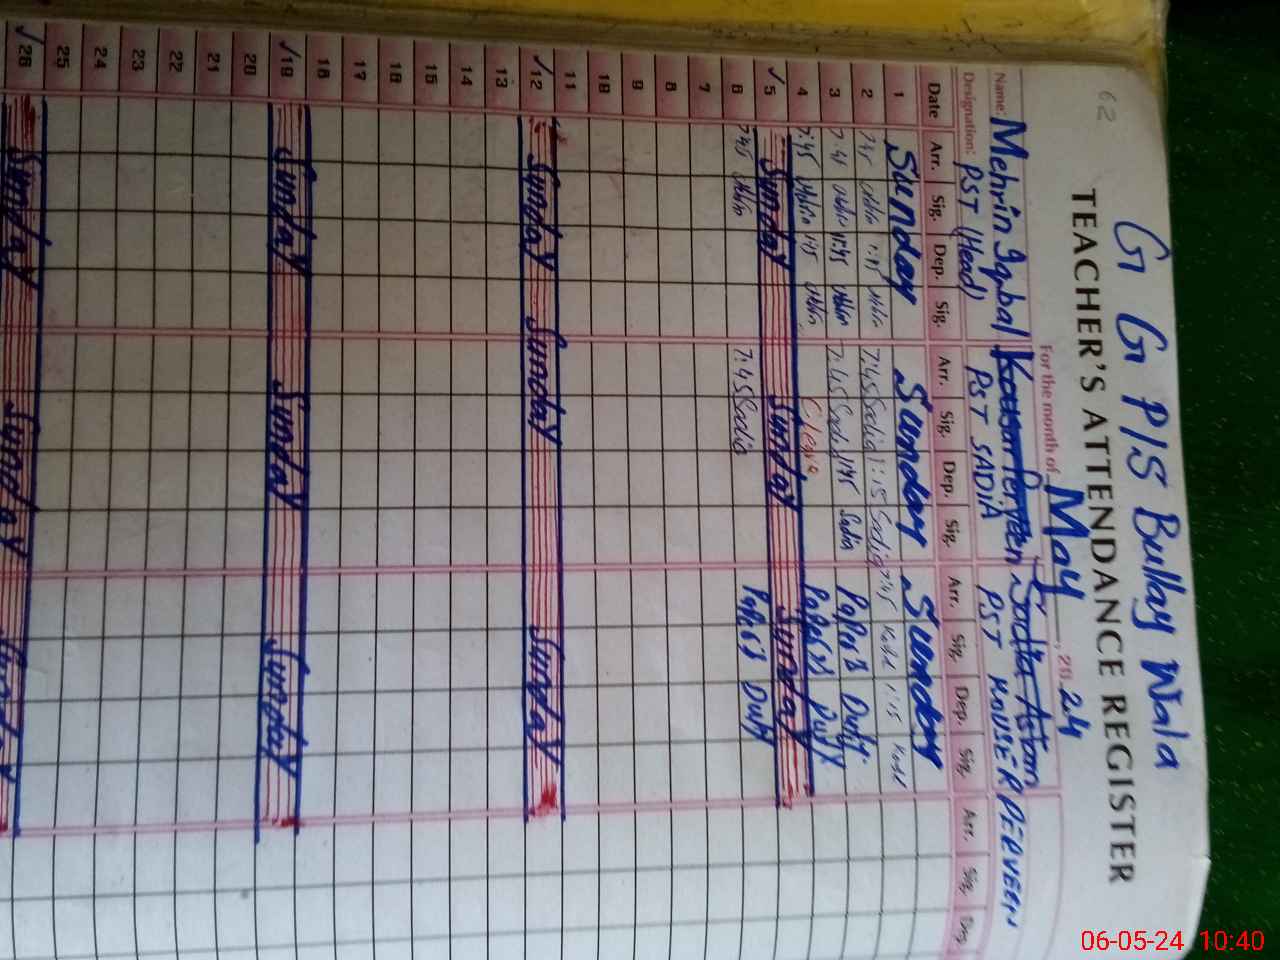 62
G G P/S Bullay Wala
TEACHER'S ATTENDANCE REGISTER
For the month of May, 20 24
Name: Mehrin Iqbal Kousar Perveen Sadia Aslam
Designation: PST (Head) PST SADIA PST KOUSER PERVEEN
Date Arr. Sig. Dep. Sig. Arr. Sig. Dep. Sig. Arr. Sig. Dep. Sig. Arr. Sig. Dep.
1 Sunday Sunday Sunday
2 7:45 1:45 7:45 Sadia 1:15 Sadia 7:45 1:15
3 7:45 7:45 Sadia Sadia Paper's Duty
4 7:45 1:45 C leave Paper's Duty
5 Sunday Sunday Sunday
6 7:45 7:45 Sadia Paper's Duty
7
8
9
10
11
12 Sunday Sunday Sunday
13
14
15
16
17
18
19 Sunday Sunday Sunday
20
21
22
23
24
25
26 Sunday Sunday Sunday
06-05-24 10:40